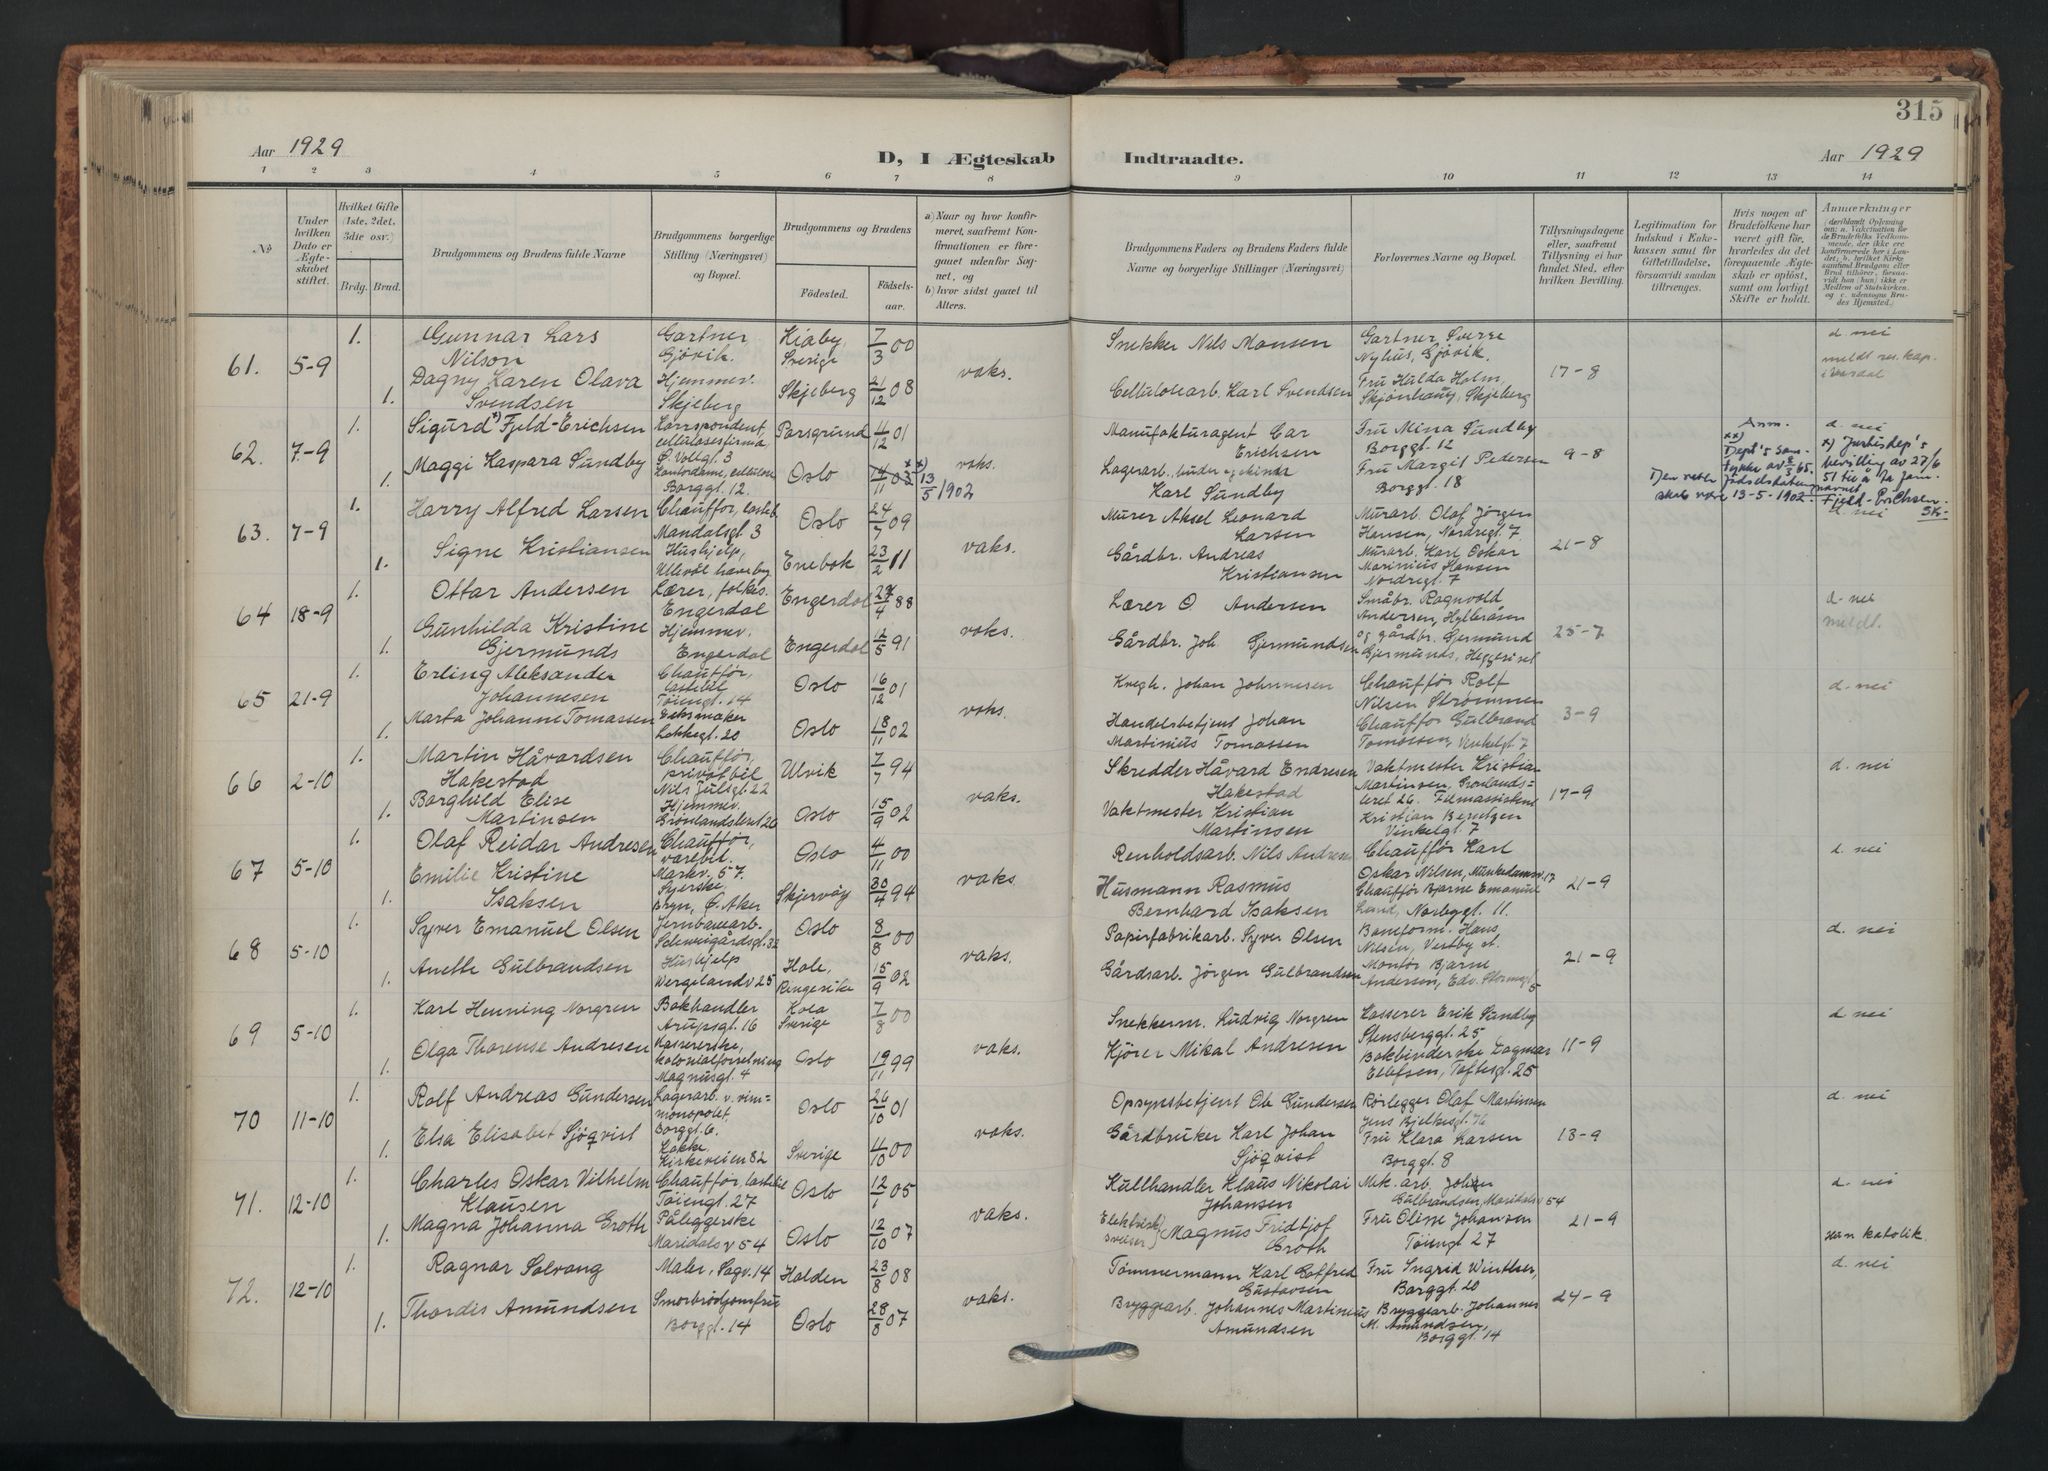 315
Aar 1929
D, I Ægteskab
Indtraadte.
Aar 1929
1 2 3 4 5 6 7 8
9 10 11 12 13 14
No
Under hvilken Dato er Ægteskabet stiftet.
Hvilket Gifte (1ste, 2det, 3die osv.)
Brdg. Brud.
Brudgommens og Brudens fulde Navne
Brudgommens borgerlige Stilling (Næringsvei) og Bopæl.
Brudgommens og Brudens
Födested.
Födselsaar.
a) Naar og hvor konfirmeret, saafremt Konfirmationen er foregaaet udenfor Sognet, og
b) hvor sidst gaaet til Alters.
Brudgommens Faders og Brudens Faders fulde Navne og borgerlige Stillinger (Næringsvei)
Forlovernes Navne og Bopæl.
Tillysningsdagene eller, saafremt Tillysning ei har fundet Sted, efter hvilken Bevilling.
Legitimation for Indskud i Enkekassen samt for Giftetilladelse, forsaavidt saadan tiltrænges.
Hvis nogen af Brudefolkene har været gift för, hvorledes da det foregaaende Ægteskab er oplöst, samt om lovligt Skifte er holdt.
Anmærkninger
61. 5-9
1. Gunnar Lars Nilson
Gartner Gjövik.
Kiaby, Sverige
7/3 00
vaks.
Snekker Nils Monsen
Gartner Sverre Nyhus, Gjövik.
17-8
d. nei
meldt res. kap. i Vardal
1. Dagny Karen Olava Svendsen
Hjemmev. Skjeberg
Skjeberg
21/12 08
Cellulosearb. Karl Svendsen
Fru Hilda Holm, Skjönhaug, Skjeberg
62. 7-9
1. Sigurd x) Fjeld-Erichsen
Korrspondent, cellulosefirma
Ö. Vollgt. 3
Porsgrund
4/12 01
vaks.
Manufakturagent Car Erichsen
Fru Mina Sundby
Borggt. 12
9-8
d. nei
1. Maggi Kaspara Sundby
Kontordame, cellulose
Borggt. 12.
Oslo
xx) 13/5 1902
Karl Sundby
Fru Margit Pedersen
Borggt. 18
Anm.
xx) Dept's samtykke av 8/3 65.
Den rette födselsdatoen
skal være 13-5-1902
x) Justisdep's bevilling av 27/6 51 til å ta fam.navnet Fjeld-Erichsen.
SK-
63. 7-9
1. Harry Alfred Larsen
Chauffør, lasteb.
Mandalsgt. 3
Oslo
24/7 09
vaks.
Murer Aksel Leonard Larsen
Murarb. Olaf Jörgen Hansen, Nordregt. 7
21-8
d. nei
1. Signe Kristiansen
Hushjelp, Ullevål haveby
Enebak
23/2 11
Gårdbr. Andreas Kristiansen
Murarb. Karl Oskar Marinius Hansen
Nordregt. 7
64 18-9
1. Ottar Andersen
Lærer, folkes.
Engerdal
Engerdal
/4 88
vaks.
Lærer O. Andersen
Småbr. Ragnvald Andersen, Hylleråsen
25-7
d. nei
meldt.
1. Gunhilda Kristine Gjermunds
Hjemmev.
Engerdal
Engerdal
12/5 91
Gårdbr. Joh. Gjermundsen
og gårdbr. Gjermund Gjermunds, Heggeriset
65 21-9
1. Erling Aleksander Johannesen
Chauffør, lastebil
Töiengt. 14
Oslo
16/12 01
vaks.
Kregh. Johan Johannesen
Chauffør Rolf Nilsen Strömmen
3-9
d. nei
1. Marta Johanne Tomassen
Lakkegt. 20
Oslo
18/11 02
Handelsbetjent Johan Martinius Tomassen
Chauffør Gulbrand Tomassen, Vinkelgt. 7
66 2-10
1. Martin Håvardsen Hakestad
Chauffør, privatbil
Nils Julsgt. 22
Ulvik
7/7 94
vaks.
Skredder Håvard Endresen Hakestad
Vaktmester Kristian Martinsen, Grønlandsleret 26.
17-9
d. nei
1. Borghild Elise Martinsen
Hjemmev.
Grønlandsleret 26
Oslo
15/9 02
Vaktmester Kristian Martinsen
Filmassistent Kristian Berntzen
Vinkelgt. 7
67 5-10
1. Olaf Reidar Andresen
Chauffør, varebil.
Markv. 57.
Oslo
4/11 00
vaks
Renholdsarb. Nils Andresen
Chauffør Karl Oskar Nilsen, Munkedamsv. 17
21-9
d. nei
1. Emilie Kristine Isaksen
Syerske
Bryn, Ö. Aker
Skjervöy
30/4 94
Husmann Rasmus Bernhard Isaksen
Chauffør Bjarne Emanuel Lund, Norbygt. 11.
68 5-10
1. Syver Emanuel Olsen
Jernbanearb.
Schweigårdsgt. 32
Oslo
8/8 00
vaks.
Papirfabrikarb. Syver Olsen
Baneform. Hans Nilsen, Vestby st.
21-9
d. nei
1. Anette Gulbrandsen
Hushjelp
Wergelandsv 25
Hole, Ringerike
15/9 02
Gårdsarb. Jörgen Gulbrandsen
Montör Bjarne Andersen, Edv. Stormsgt. 5
69 5-10
1. Karl Henning Norgren
Bokhandler
Arupsgt. 16
Kola Sverige
7/8 00
vaks.
Snekkerm. Ludvig Norgren
Kasserer Erik Sundby
Stensberggt. 25
11-9
d. nei
1. Olga Thorense Andresen
Kassererske, kolonialforretning
Magnusgt. 4
Oslo
19/11 99
Kjörer Mikal Andresen
Bokbinderske Dagmar Ellefsen, Toftesgt. 25
70 11-10
1. Rolf Andreas Gundersen
Lagerarb. v. vinmonopolet
Borggt. 6.
Oslo
26/10 01
vaks.
Opsynsbetjent Ole Gundersen
Rörlegger Olaf Martinsen
Jens Bjelkesgt. 76
13-9
d. nei
1. Elsa Elisabet Sjöqvist
Kokke
Kirkeveien 82
Sverige
4/10 00
Gårdbruker Karl Johan Sjöqvist
Fru Klara Larsen
Borggt. 8
71. 12-10
1. Charles Oskar Vilhelm Klausen
Chauffør, lastebil
Töiengt. 27
Oslo
12/1 05
vaks.
Kullhandler Klaus Nikolai Johansen
Mek. arb. Johan Gulbrandsen, Maridalsv 54
21-9
d. nei
1. Magna Johanna Groth
Påleggerske
Maridalsv 54
Oslo
12/10 07
Magnus Fridtjof Groth
Fru Oline Johansen
Töiengt 27
Han katolik.
72. 12-10
1. Ragnar Solvang
Maler, Sagv. 14
Halden
23/8 08
vaks.
Tömmermann Karl Gotfred Gustavsen
Fru Ingrid Winther,
Borggt. 20
24-9
d. nei
1. Thordis Amundsen
Smørbrödjomfru
Borggt. 14
Oslo
28/8 07
Bryggearb. Johannes Martinius Amundsen
Bryggearb. Johannes M. Amundsen,
Borggt. 14